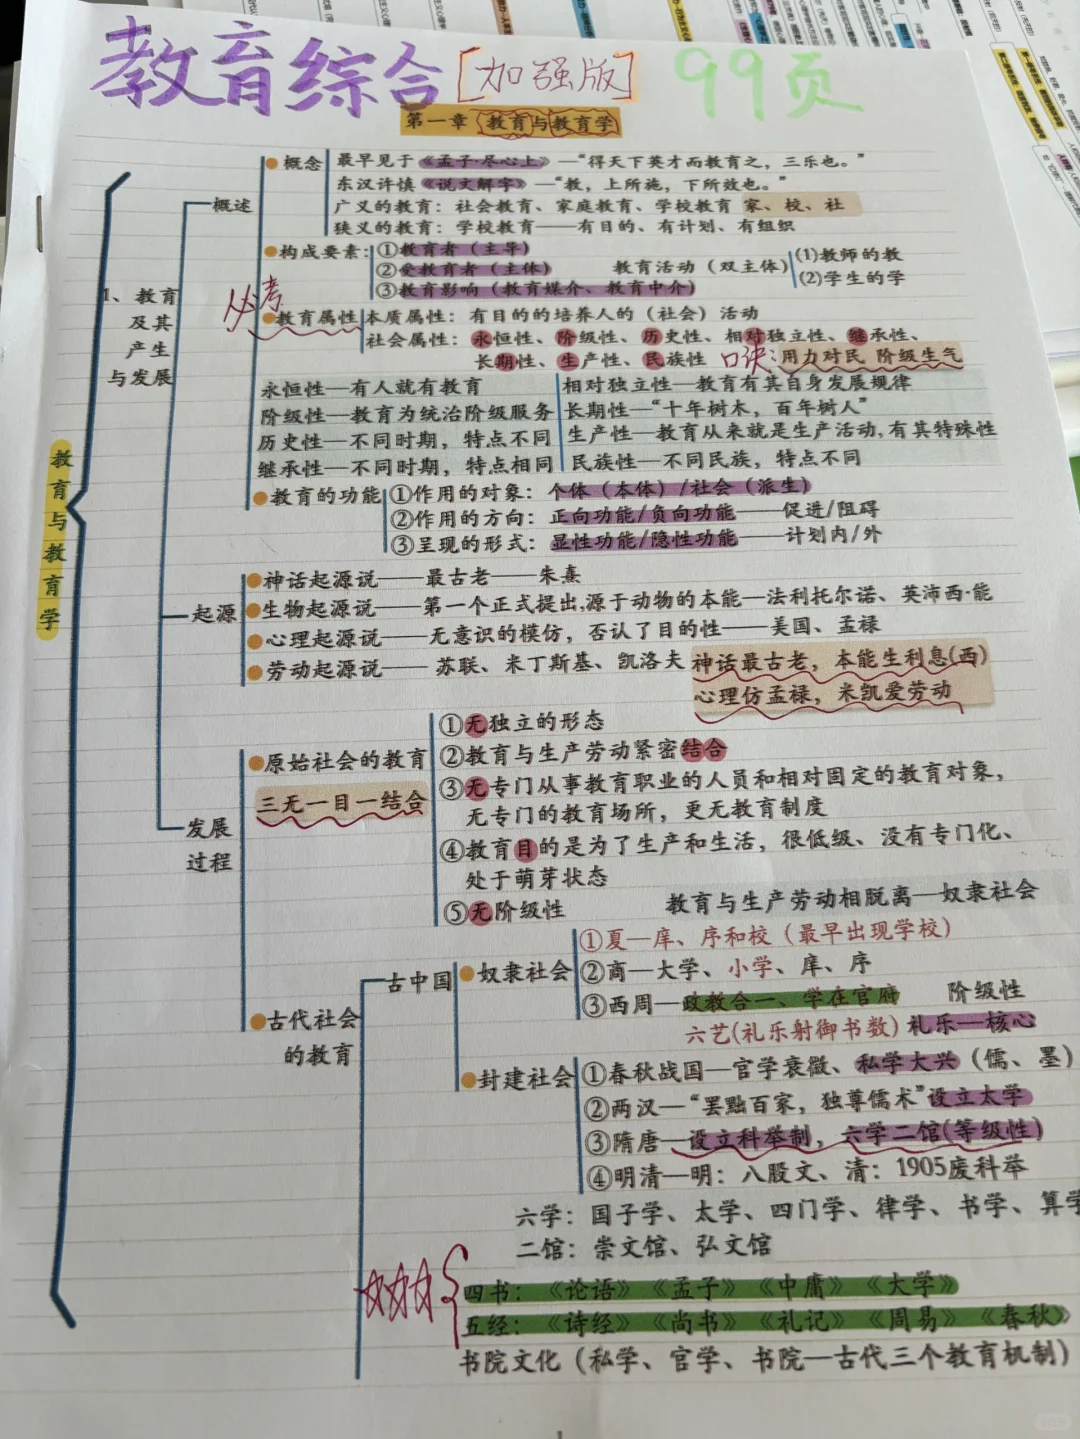 教育综合[加强版] 99页
第一章 教育与教育学
教育与教育学
1、教育及其产生与发展
概述
概念
最早见于《孟子·尽心上》—“得天下英才而教育之，三乐也。”
东汉许慎《说文解字》—“教，上所施，下所效也。”
广义的教育：社会教育、家庭教育、学校教育 家、校、社
狭义的教育：学校教育——有目的、有计划、有组织
构成要素:
①教育者（主导）
②受教育者（主体）
③教育影响（教育媒介、教育中介）
教育活动（双主体）
(1)教师的教
(2)学生的学
必考
教育属性
本质属性：有目的的培养人的（社会）活动
社会属性：永恒性、阶级性、历史性、相对独立性、继承性、
长期性、生产性、民族性 口诀：用力对民 阶级生气
永恒性—有人就有教育
阶级性—教育为统治阶级服务
历史性—不同时期，特点不同
继承性—不同时期，特点相同
相对独立性—教育有其自身发展规律
长期性—“十年树木，百年树人”
生产性—教育从来就是生产活动,有其特殊性
民族性—不同民族，特点不同
教育的功能
①作用的对象：个体（本体）/社会（派生）
②作用的方向：正向功能/负向功能——促进/阻碍
③呈现的形式：显性功能/隐性功能——计划内/外
起源
神话起源说——最古老——朱熹
生物起源说——第一个正式提出,源于动物的本能—法利托尔诺、英沛西·能
心理起源说——无意识的模仿，否认了目的性——美国、孟禄
劳动起源说——苏联、米丁斯基、凯洛夫
神话最古老，本能生利息(西)
心理仿孟禄，米凯爱劳动
发展过程
原始社会的教育
三无一目一结合
①无独立的形态
②教育与生产劳动紧密结合
③无专门从事教育职业的人员和相对固定的教育对象，
无专门的教育场所，更无教育制度
④教育目的是为了生产和生活，很低级、没有专门化、
处于萌芽状态
⑤无阶级性
教育与生产劳动相脱离—奴隶社会
古代社会的教育
古中国
奴隶社会
①夏—庠、序和校（最早出现学校）
②商—大学、小学、庠、序
③西周—政教合一、学在官府 阶级性
六艺(礼乐射御书数) 礼乐—核心
封建社会
①春秋战国—官学衰微、私学大兴（儒、墨）
②两汉—“罢黜百家，独尊儒术”设立太学
③隋唐—设立科举制，六学二馆(等级性)
④明清—明：八股文、清：1905废科举
六学：国子学、太学、四门学、律学、书学、算学
二馆：崇文馆、弘文馆
四书：《论语》《孟子》《中庸》《大学》
五经：《诗经》《尚书》《礼记》《周易》《春秋》
书院文化（私学、官学、书院—古代三个教育机制）
1